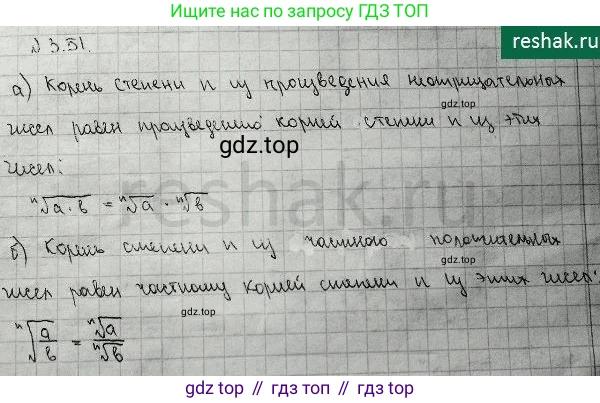 Ищите нас по запросу ГДЗ ТОП
reshak.ru
N 3.51.
а) Корень степени n из произведения неотрицательных
gdz.top
чисел равен произведению корней степени n из этих
gdz.top
чисел:
reshak.ru
ⁿ√a·b = ⁿ√a · ⁿ√b
б) Корень степени n из частного положительных
gdz.top
чисел равен частному корней степени n из этих чисел:
gdz.top
ⁿ√(a/b) = ⁿ√a / ⁿ√b
gdz top // гдз топ // gdz top // гдз топ